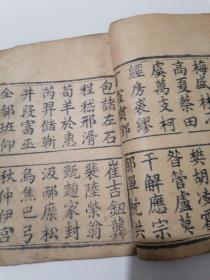 梅盛林
高夏蔡田 樊胡凌霍
虞萬支柯 昝管盧莫
經房裘繆 干解應宗
宣賁鄧 郁單杭洪
包諸左石 崔吉鈕龔
程嵇邢滑 裴陸榮翁
荀羊於惠 甄麴家封
芮羿儲靳 汲邴糜松
井段富巫 烏焦巴弓
全郗班仰 秋仲伊宮